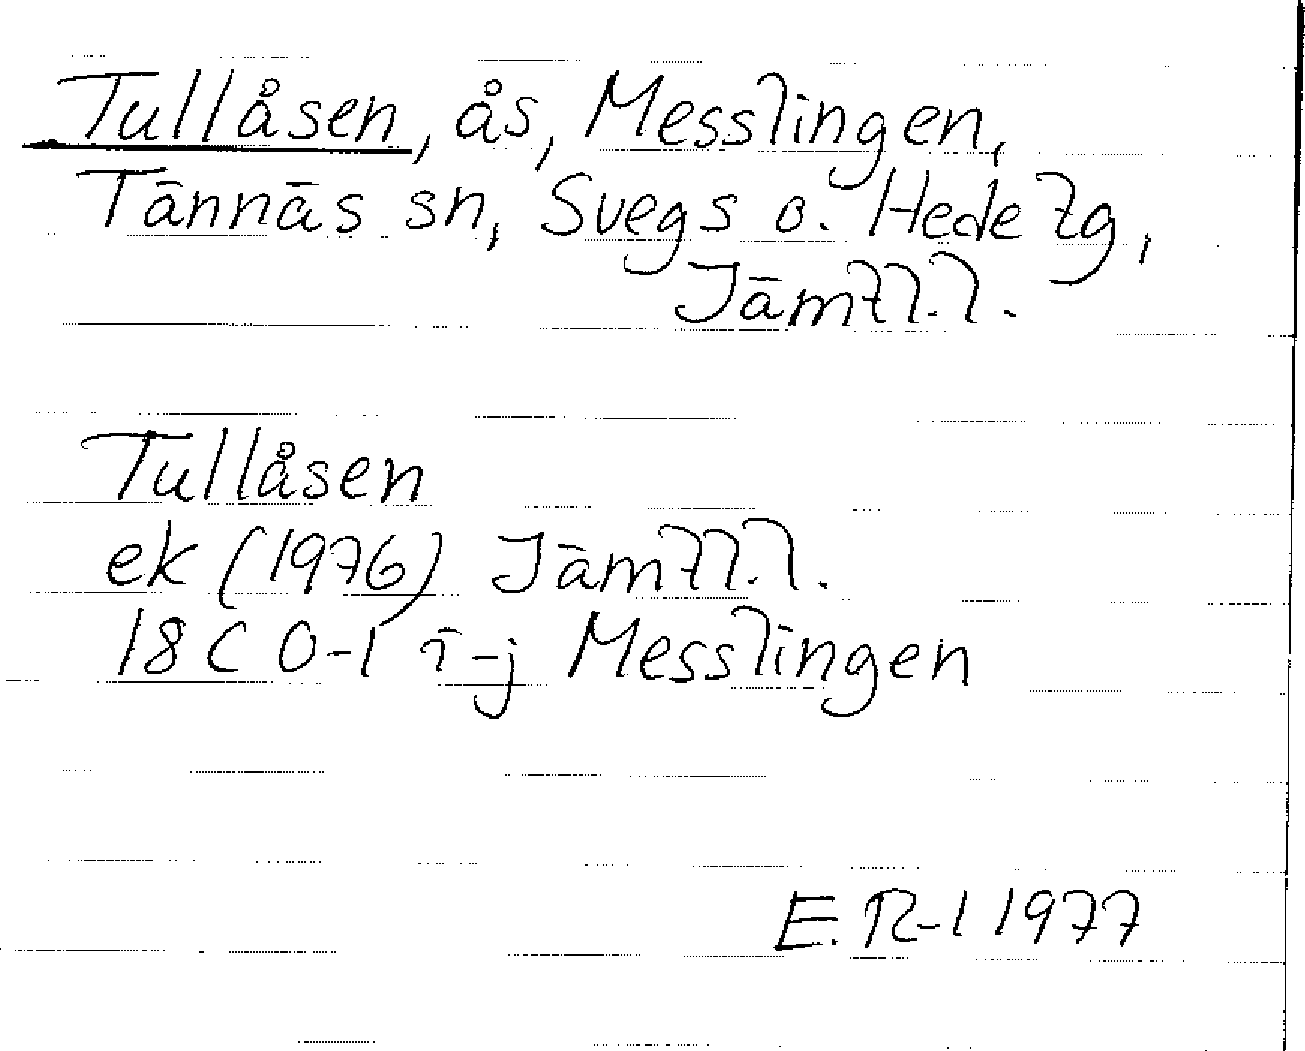 Tullåsen, ås, Messlingen,
Tännäs sn, Svegs o. Hede tg,
Jämtl. l.
Tullåsen
ek (1976) Jämtl. l.
18 C 0-1 i-j Messlingen
E. R-l 1977